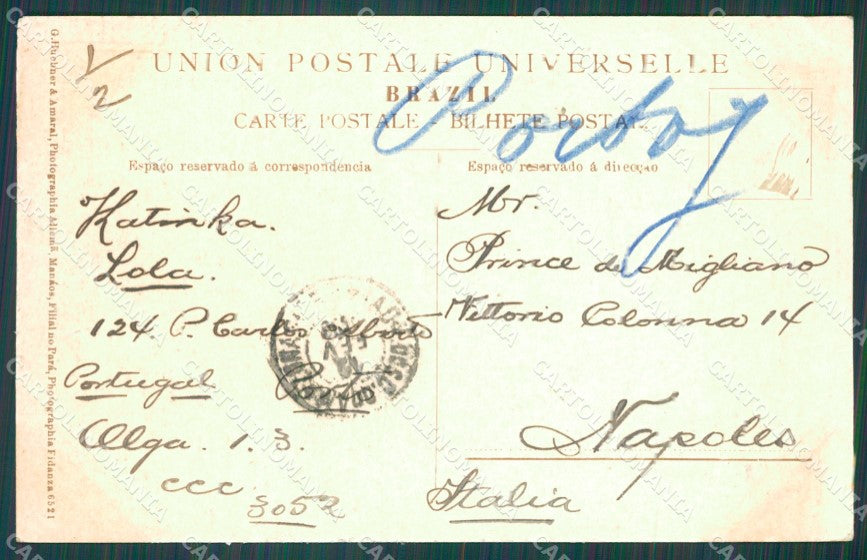 UNION POSTALE UNIVERSELLE
BRAZIL
CARTE POSTALE BILHETE POSTAL
Espaço reservado á correspondencia
Espaço reservado á direcção
Katinka.
Lola.
124. P. Carlos Alberto
Portugal
Olga. 1.3.
ccc
3052
Mr.
Prince de Migliano
Vittorio Colonna 14
Napoles
Italia
G. Huebner & Amaral, Photographia Allemã, Manáos, Filial no Pará, Photographia Fidanza 6521
CARTOLINOMANIA